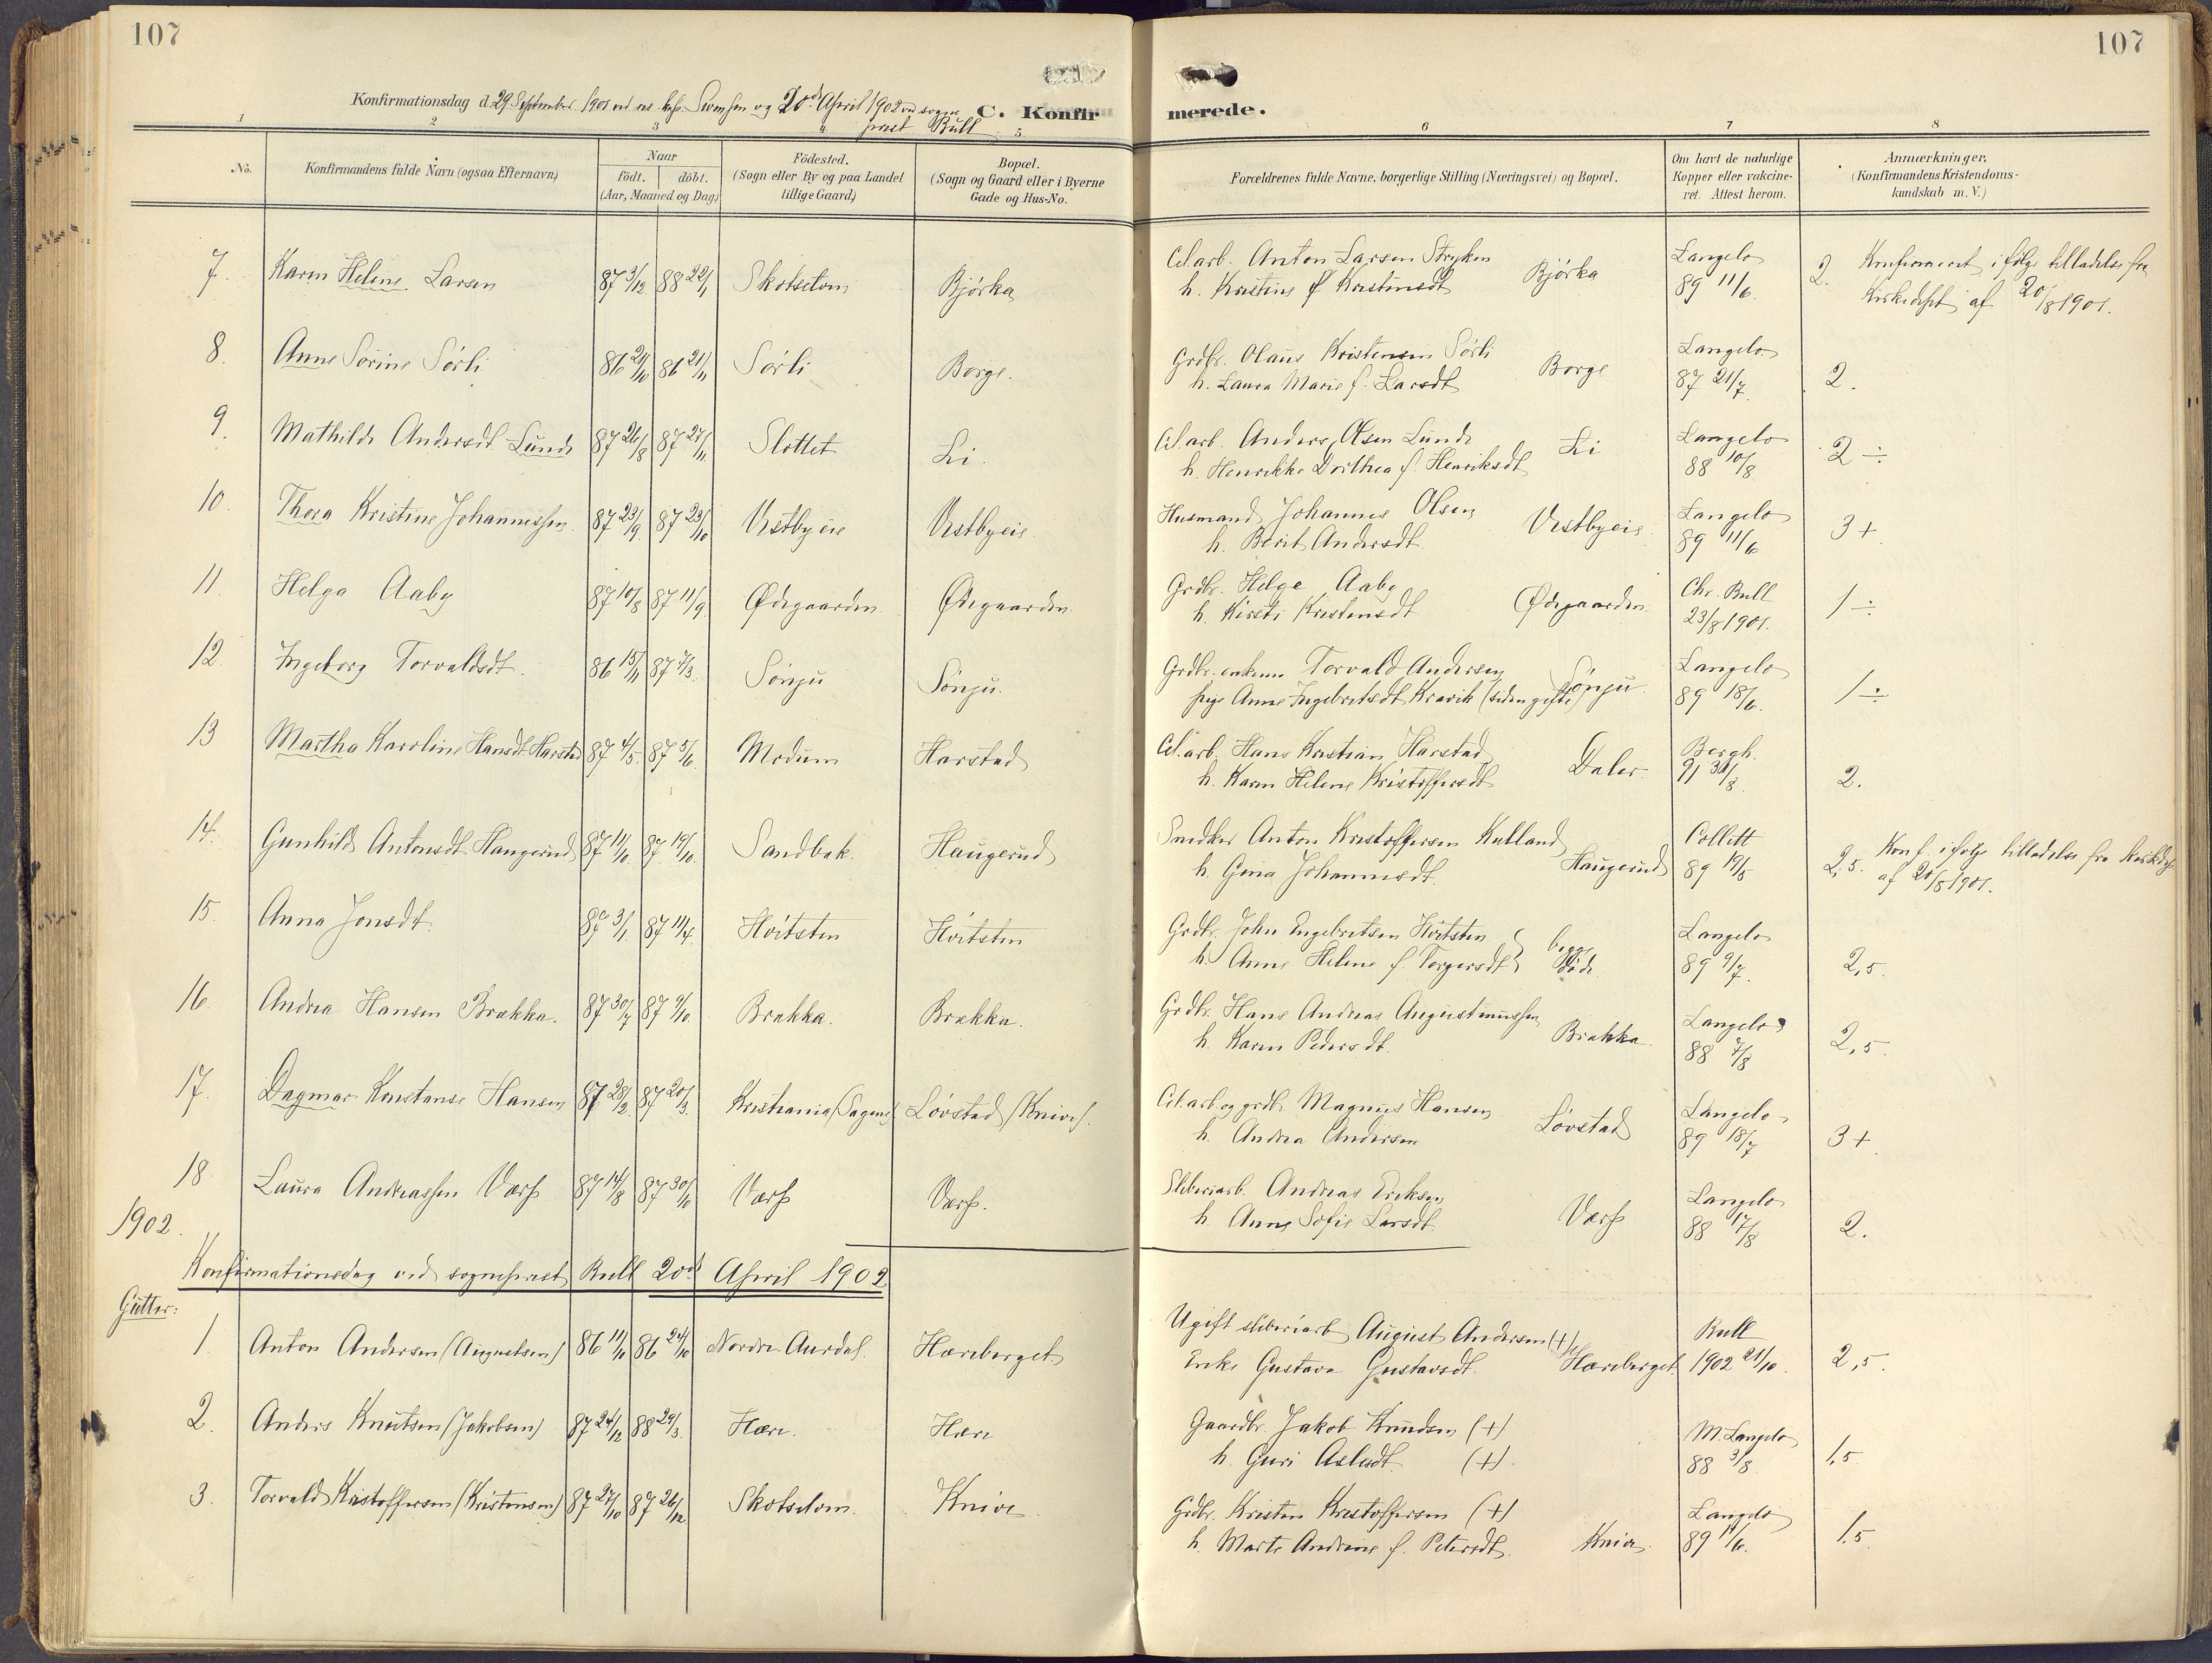 107
107
Konfirmationsdag d. 29 September 1901 ved res. kap. Svensen og 20de April 1902 ved sogne
prest Bull
C. Konfir
merede.
1 2 3 4 5 6 7 8
No.
Konfirmandens fulde Navn (ogsaa Efternavn)
Naar
födt. döbt.
(Aar, Maaned og Dag)
Födested.
(Sogn eller By og paa Landet
tillige Gaard)
Bopæl.
(Sogn og Gaard eller i Byerne
Gade og Hus-No.
Forældrenes fulde Navne, borgerlige Stilling (Næringsvei) og Bopæl.
Om havt de naturlige
Kopper eller vakcine-
ret. Attest herom.
Anmærkninger.
(Konfirmandens Kristendoms-
kundskab m. V.)
7. Karen Helene Larsen 87 3/12 88 22/1 Skotselven Bjórka
Cel.arb. Anton Larsen Stryken
h. Kristine f. Kristinsdt Bjórka
Langelo
89 11/6
2. Konfirmeret ifólge tilladelse fra
Kirkedept af 20/8 1901.
8. Anne Sorine Sórli 86 21/10 86 21/11 Sórli Borge.
Grdbr. Olaus Kristensen Sórli
h. Laura Marie f. Larsdt Borge
Langelo
87 21/7
2.
9. Mathilde Andersdt Lunde 87 26/8 87 27/11 Slottet Li.
Cel.arb. Anders Olsen Lunde
h. Henrikke Dorthea f. Henriksdt Li
Langelo
88 10/8
2 ÷
10. Thora Kristine Johannessen 87 23/9 87 23/10 Vestbyeie Vestbyeie.
Husmand Johannes Olsen
h. Berit Andersdt Vestbyeie
Langelo
89 11/6
3+
11. Helga Aaby 87 10/8 87 11/9 Ødegaarden Ødegaarden.
Grdbr. Helge Aaby
h. Kirsti Kristensdt Ødegaarden.
Chr. Bull
23/8 1901.
1 ÷
12. Ingeborg Torvaldsdt. 86 15/11 87 7/3 Sónju Sónju.
Grdbr. enkem. Torvald Andersen
pige Anne Ingebretsdt Kravik (siden gifte) Sónju.
Langelo
89 18/6.
1 ÷
13 Martha Karoline Hansdt Harstad 87 4/5 87 5/6 Modum Harstad
Cel.arb. Hans Kristian Harstad
h. Karen Helene Kristoffersdt Daler.
Bergh.
91 30/8
2.
14. Gunhild Antonsdt Haugerud 87 11/10 87 19/10 Sandbak. Haugerud
Snedker Anton Kristoffersen Kulland
h. Gina Johannesdt. Haugerud
Collett
89 19/5
2,5. Konf. ifólge tilladelse fra Kirkedep
af 20/8 1901.
15. Anna Jonsdt. 87 3/1 87 11/4 Hóitsten Hóitsten
Grdbr. John Engebretsen Hóitsten
h. Anne Helene f. Torgersdt } begge döde
Langelo
89 9/7.
2,5.
16. Andrea Hansen Brekka. 87 30/7 87 9/10 Brekka. Brekka.
Grdbr. Hans Andreas Augustinussen
h. Karen Pedersdt. Brekka
Langelo
88 7/8
2,5.
17. Dagmar Konstanse Hansen 87 28/2 87 20/3 Kristiania (Sagene) Lóvstad (Knive).
Cel.arb. og grdbr. Magnus Hansen
h. Andrea Andersen Lóvstad
Langelo
89 18/7
3+.
18. Laura Andreassen Varp 87 14/8 87 30/10 Varp Varp.
Sliberiarb. Andreas Eriksen
h. Anne Sofie Larsdt. Varp
Langelo
88 17/8
2.
1902.
Konfirmationsdag ved sogneprest Bull 20de April 1902
Gutter:
1. Anton Andersen (Augustsen) 86 11/10 86 24/10 Nordre Aurdal. Hæreberget
Ugift sliberiarb August Andersen (+)
Enke Gustava Gustavsdt. Hæreberget
Bull
1902 21/10.
2,5.
2. Anders Knutsen (Jakobsen) 87 24/12 88 29/3 Hære. Hære
Gaardbr. Jakob Knudsen (+)
h. Guri Aslesdt. (+)
M. Langelo
88 3/8.
1,5
3. Torvald Kristoffersen (Kristensen) 87 27/10 87 26/12 Skotselven. Knive
Grdbr. Kristen Kristoffersen (+)
h. Marte Andrine f. Petersdt. Knive
Langelo
89 11/6.
1,5